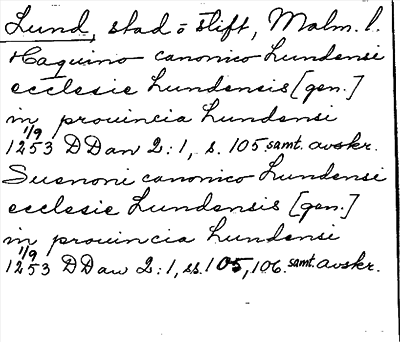 Lund, stad o stift, Malm. l.
Haquino canonico Lundensi
ecclesie Lundensis [gen.]
in prouincia Lundensi
1/9
1253 DDan 2:1, s. 105 samt. avskr.
Suenoni canonico Lundensi
ecclesie Lundensis [gen.]
in prouincia Lundensi
1/9
1253 DDan 2:1, ss. 105, 106. samt. avskr.